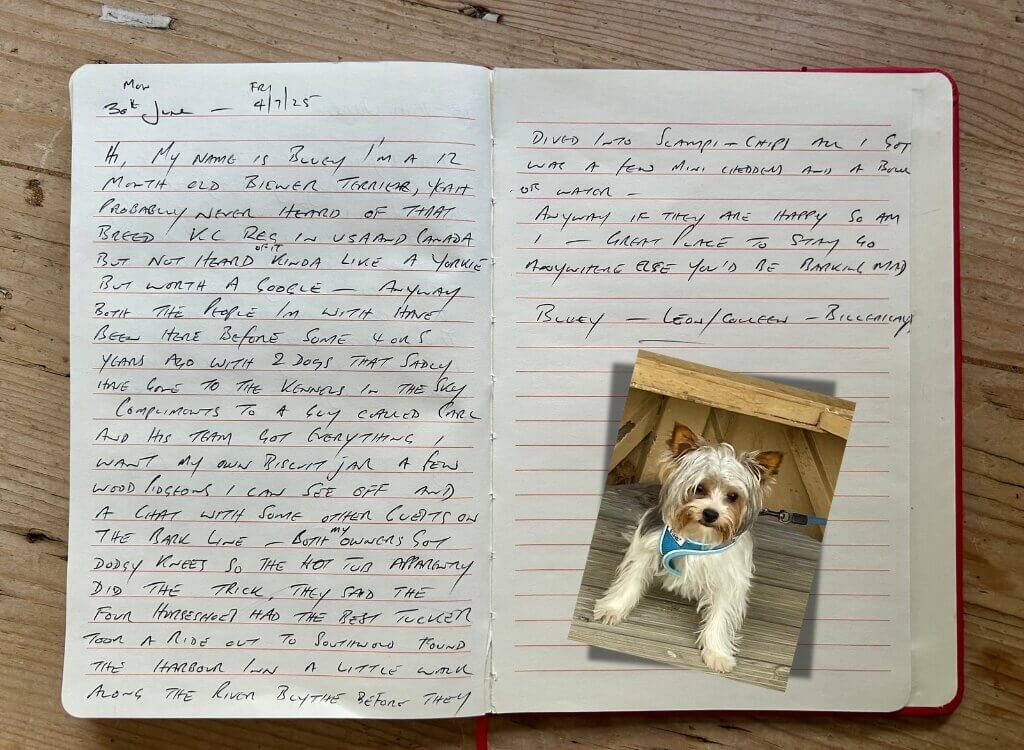 Mon Fri
30th June — 4/7/25
Hi, My name is Bluey I'm a 12
month old Biewer Terrier, yeah
probably never heard of that
breed K.C Reg in USA and Canada
but not heard of it kinda like a Yorkie
but worth a Google — Anyway
both the people I'm with have
been here before some 4 or 5
years ago with 2 dogs that sadly
have gone to the kennels in the sky
Compliments to a guy called Carl
and his team got everything I
want my own biscuit jar a few
wood pidgeons I can see off and
a chat with some other guests on
the bark line — both my owners got
dodgy knees so the hot tub apparently
did the trick, they said the
Four Horseshoes had the best tucker
took a ride out to Southwold found
the Harbour Inn a little walk
along the River Blythe before they
dived into scampi + chips all I got
was a few mini cheddars and a bowl
of water —
Anyway if they are happy so am
I — Great place to stay go
anywhere else you'd be barking mad
Bluey — Leon/Colleen — Billericay